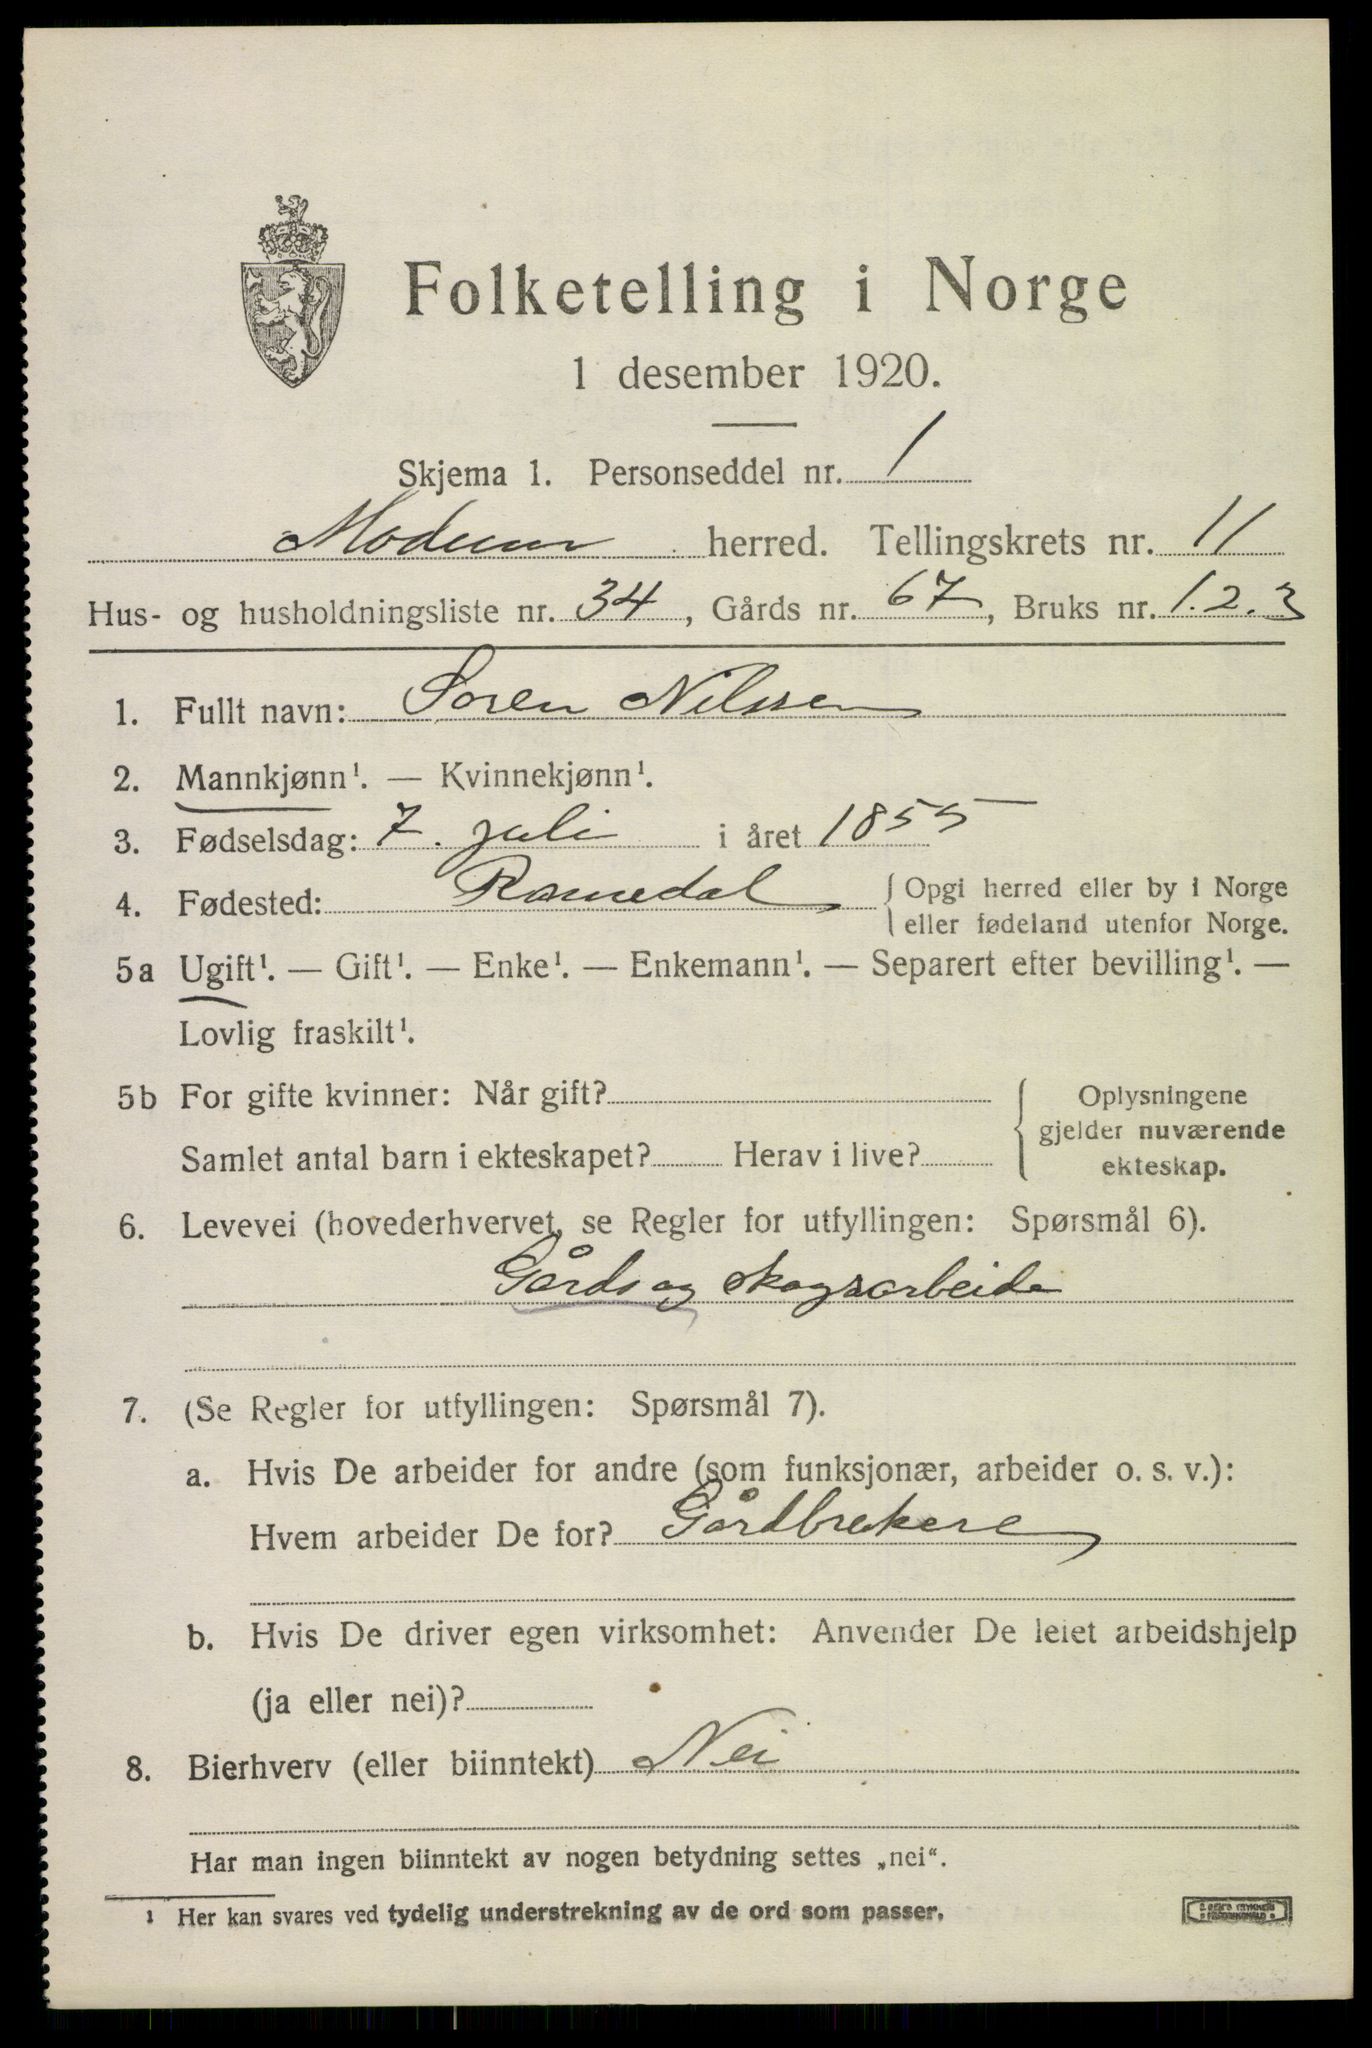 Folketelling i Norge
1 desember 1920.
Skjema 1. Personseddel nr. 1
Modum herred. Tellingskrets nr. 11
Hus- og husholdningsliste nr. 34, Gårds nr. 67, Bruks nr. 1.2.3
1. Fullt navn: Soren Nilssen
2. Mannkjønn¹. — Kvinnekjønn¹.
3. Fødselsdag: 7. juli i året 1855
4. Fødested: Romedal { Opgi herred eller by i Norge
eller fødeland utenfor Norge.
5a Ugift¹. — Gift¹. — Enke¹. — Enkemann¹. — Separert efter bevilling¹. —
Lovlig fraskilt¹.
5b For gifte kvinner: Når gift? { Oplysningene
gjelder nuværende
Samlet antal barn i ekteskapet? Herav i live? ekteskap.
6. Levevei (hovederhvervet, se Regler for utfyllingen: Spørsmål 6).
Gårds og skogsarbeide
7. (Se Regler for utfyllingen: Spørsmål 7).
a. Hvis De arbeider for andre (som funksjonær, arbeider o. s. v.):
Hvem arbeider De for? Gårdbrukere
b. Hvis De driver egen virksomhet: Anvender De leiet arbeidshjelp
(ja eller nei)?
8. Bierhverv (eller biinntekt) Nei
Har man ingen biinntekt av nogen betydning settes „nei“.
¹ Her kan svares ved tydelig understrekning av de ord som passer.